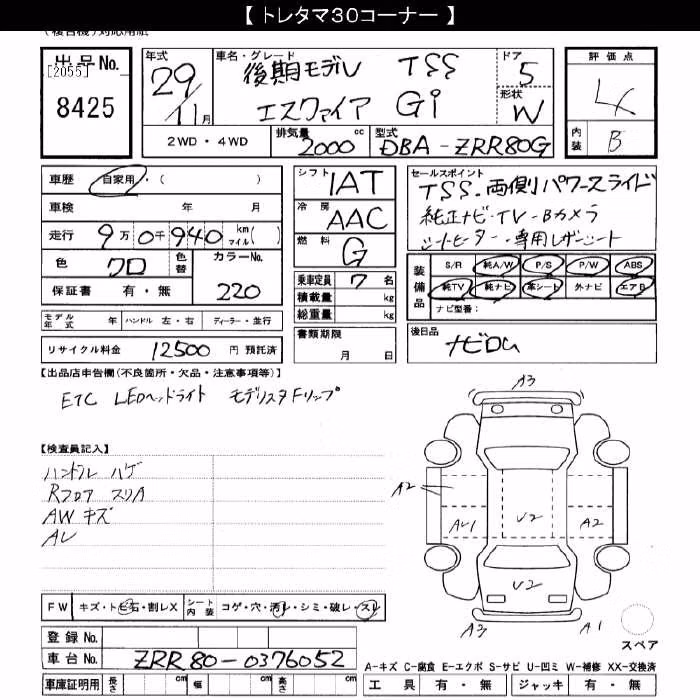 【 トレタマ３０コーナー 】
(複合機)対応用紙
出品No.
[2055]
8425
年式
29/11月
車名・グレード
後期モデル TSS
エスクァイア Gi
ドア
5
形状
W
評価点
4
内装
B
2WD・4WD
排気量 2000 cc
型式 DBA-ZRR80G
車歴 自家用・( )
車検 年 月
走行 9万0千940 km マイル( )
色 クロ 色替 カラーNo.
保証書 有・無 220
モデル年式 年 ハンドル 左・右 ディーラー・並行
リサイクル料金 12500 円 預託済
シフト IAT
冷房 AAC
燃料 G
乗車定員 7 名
積載量 kg
総重量 kg
書類期限
月 日
セールスポイント
TSS.両側パワースライド
純正ナビ・TV-Bカメラ
シートヒーター・専用レザーシート
装備品
S/R 純A/W P/S P/W ABS
純TV 純ナビ 革シート 外ナビ エアB
ナビ型番:
後日品
ナビロム
【出品店申告欄(不良箇所・欠品・注意事項等)】
ETC LEDヘッドライト モデリスタFリップ
【検査員記入】
ハンドル ハゲ
Rフロア スリA
AW キズ
AL
FW キズ・トビ石・割レX シート内装 コゲ・穴・汚レ・シミ・破レ・スレ
登録 No.
車台 No. ZRR80-0376052
車庫証明用 長さ cm 幅 cm 高さ cm
A3
A2
AU1
U2
A2
U2
A3
A1
スペア
A-キズ C-腐食 E-エクボ S-サビ U-凹ミ W-補修 XX-交換済
工具 有・無 ジャッキ 有・無